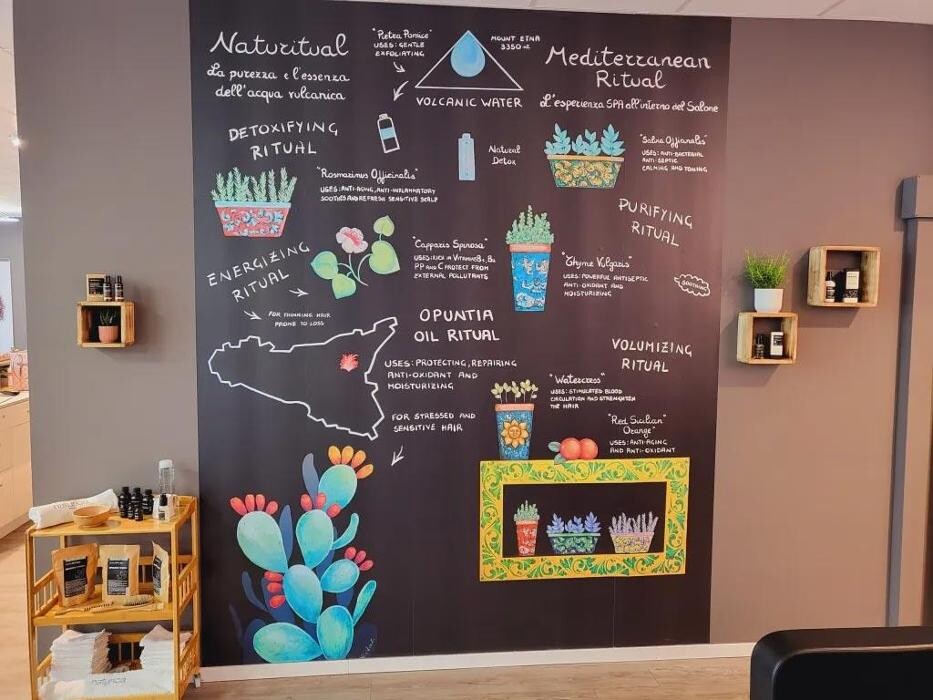 Naturitual
La purezza e l'essenza
dell'acqua vulcanica
"Pietra Pomice"
USES: GENTLE
EXFOLIATING
MOUNT ETNA
3350 mt
VOLCANIC WATER
Mediterranean
Ritual
L'esperienza SPA all'interno del Salone
DETOXIFYING
RITUAL
Natural
Detox
"Salvia Officinalis"
USES: ANTI-BACTERIAL
ANTI-SEPTIC
CALMING AND TONING
"Rosmarinus Officinalis"
USES: ANTI-AGING, ANTI-INFLAMMATORY
SOOTHES AND REFRESH SENSITIVE SCALP
PURIFYING
RITUAL
ENERGIZING
RITUAL
"Capparis Spinosa"
USES: RICH IN VITAMINS B1, B2
PP AND C PROTECT FROM
EXTERNAL POLLUTANTS
"Thyme Vulgaris"
USES: POWERFUL ANTISEPTIC
ANTI-OXIDANT AND
MOISTURIZING
SOOTHING
FOR THINNING HAIR
PRONE TO LOSS
OPUNTIA
OIL RITUAL
VOLUMIZING
RITUAL
USES: PROTECTING, REPAIRING
ANTI-OXIDANT AND
MOISTURIZING
"Watercress"
USES: STIMULATED BLOOD
CIRCULATION AND STRENGHTEN
THE HAIR
FOR STRESSED AND
SENSITIVE HAIR
"Red Sicilian
Orange"
USES: ANTI-AGING
AND ANTI-OXIDANT
naturica